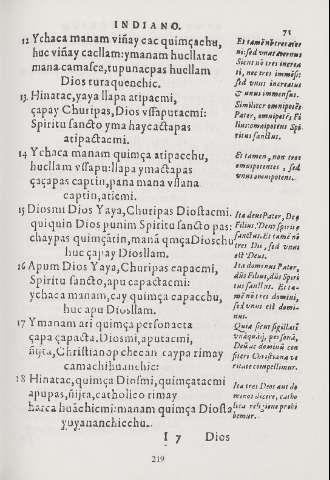 INDIANO.
75
12 Ychaca manam viñay cac quimçachu,
huc viñay cacllam: ymanam hucllatac
mana camasca, tupunacpas hucllam
Dios tura quenchic.
13 Hinatac, yaya llapa atipacmi,
çapay Churipas, Dios vssaputacmi:
Spiritu sancto yma haycactapas
atipactacmi.
14 Ychaca manam quimça atipacchu,
hucllam vssapu: llapa ymactapas
çaçapas captin, pana mana vssana
captin, aticmi.
15 Diosmi Dios Yaya, Churipas Diostacmi:
quiquin Dios punim Spiritu sancto pas:
chaypas quimçãtin, manã qmçaDioschu
huc çapay Diosllam.
16 Apum Dios Yaya, Churipas capacmi,
Spiritu sancto, apu capactacmi:
ychaca manam, cay quimça capacchu,
huc apu Diosllam.
17 Ymanam ari quimça personacta
çapa çapacta, Diosmi, aputacmi,
ñijta, Christiano p checan caypa rimay
camachihuanchic:
18 Hinatac, quimça Diosmi, quimçatacmi
apupas, ñijta, catholico rimay
harca huãchicmi: manam quimça Diosta
yuyananchicchu.
Et tamẽ nõ tres æter
ni: sed vnus æternus
Sicut nõ tres increa
ti, nec tres immẽsi:
sed vnus increatus
& vnus immensus.
Similiter omnipotẽs
Pater, omnipotẽs Fi
lius: omnipotens Spi
ritus sanctus.
Et tamen, non tres
omnipotentes, sed
vnus omnipotens.
Ita deus Pater, De⁹
Filius, Deus spiritus
sanctus. Et tamẽ nõ
tres Dii, sed vnus
est Deus.
Ita dominus Pater,
dñs Filius, dñs Spiri
tus sanctus. Et ta-
mẽ nõ tres domini,
sed vnus est domi-
nus.
Quia sicut sigillatĩ
vnãquãq; personã,
Deũ ac dominũ con
fiteri Christiana ve
ritate compellimur.
Ita tres Deos aut do
minos dicere, catho
lica religione prohi
bemur.
I 7 Dios
219